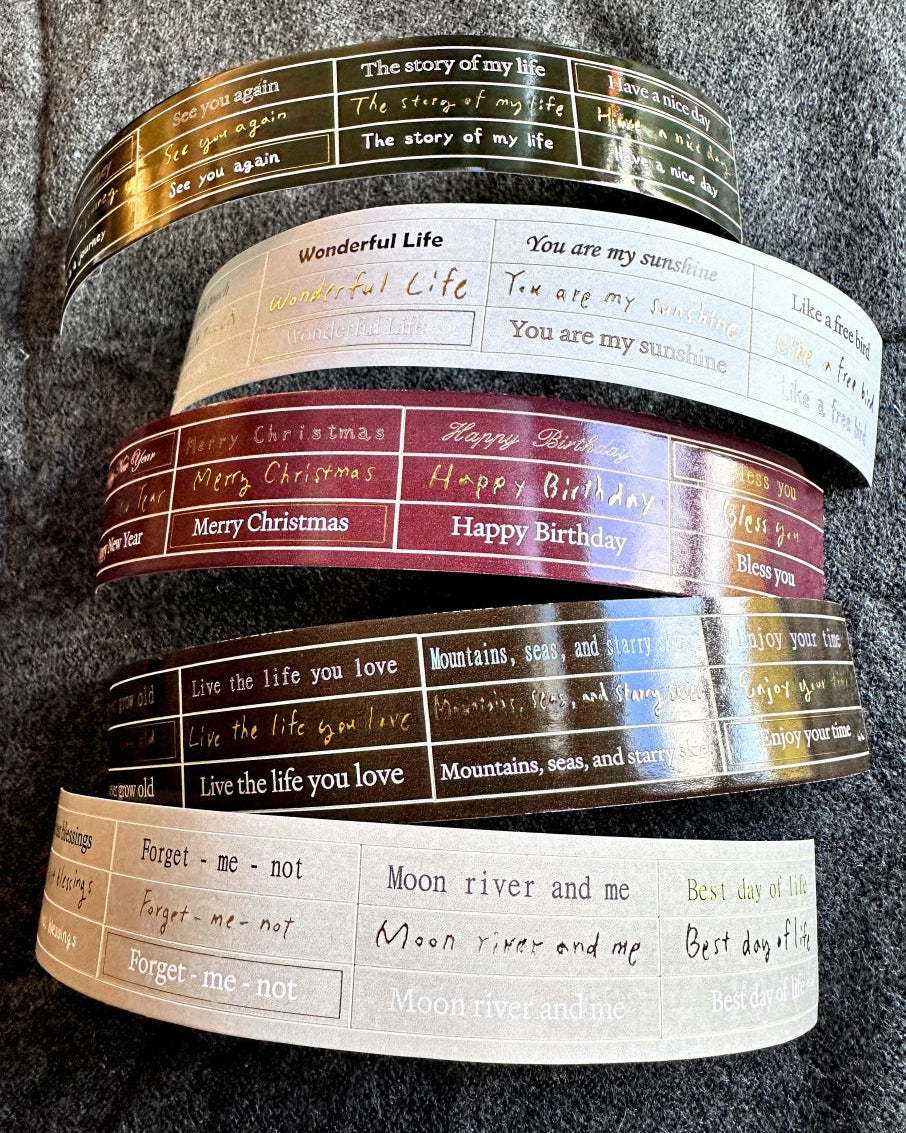 See you again The story of my life Have a nice day
See you again The story of my life Have a nice day
journey See you again The story of my life Have a nice day
Wonderful Life You are my sunshine Like a free bird
Wonderful Life You are my sunshine Like a free bird
Wonderful Life You are my sunshine Like a free bird
New Year Merry Christmas Happy Birthday Bless you
Year Merry Christmas Happy Birthday Bless you
New Year Merry Christmas Happy Birthday Bless you
grow old Live the life you love Mountains, seas, and starry skies Enjoy your time
old Live the life you love Mountains, seas, and starry skies Enjoy your time
grow old Live the life you love Mountains, seas, and starry skies Enjoy your time
blessings Forget - me - not Moon river and me Best day of life
blessings Forget - me - not Moon river and me Best day of life
blessings Forget - me - not Moon river and me Best day of life